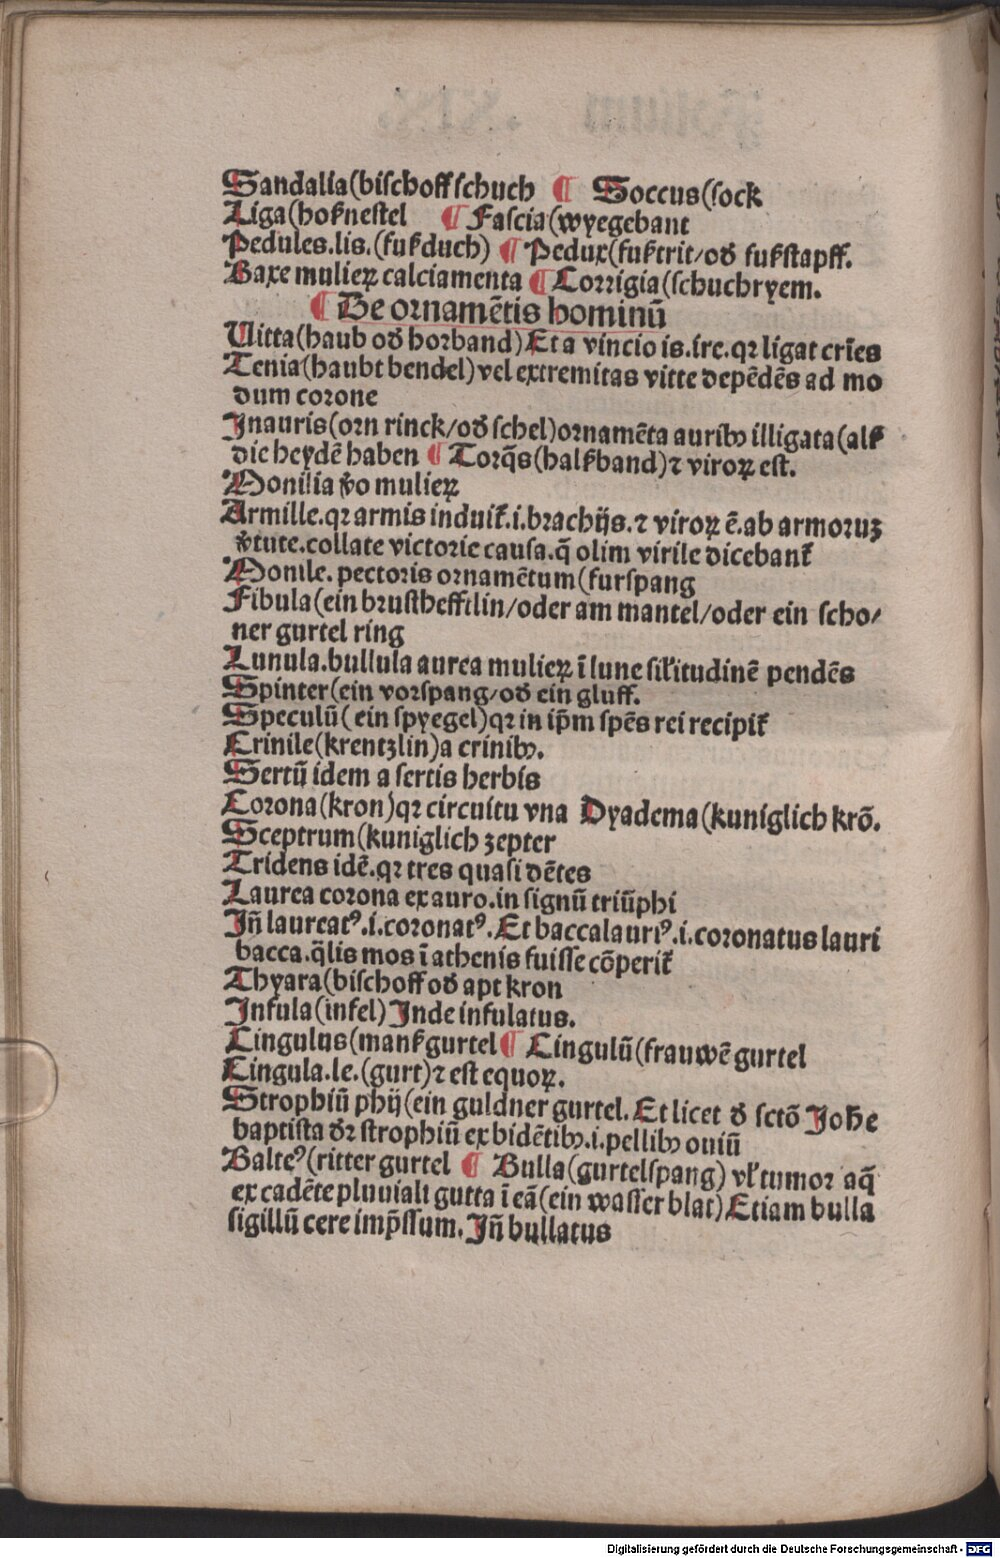 Sandalia(biſchoff ſchuch ¶ Soccus(ſock
Liga(hoßneſtel ¶ Faſcia(wyegebant
Pedules.lis.(fußduch) ¶ Pedux(fußtrit/od̕ fußſtapff.
Baxe mulieꝝ calciamenta ¶ Corrigia(ſchuchryem.
¶ De ornamētis hominū
Vitta(haub od̕ horband) Et a vincio is.ire.qꝛ ligat crīes
Tenia(haubt bendel) vel extremitas vitte depēdēs ad mo
dum corone
Inauris(orn rinck/od̕ ſchel)ornamēta auribꝰ illigata(alß
die heydē haben ¶ Torq̄s(halßband)⁊ viroꝝ eſt.
Monilia v̕o mulieꝝ
Armille.qꝛ armis induūt̕.i.brachijs.⁊ viroꝝ ē.ab armoruꝫ
v̕tute.collate victorie cauſa.q̄ olim virile dicebant̕
Monile.pectoris ornamētum(furſpang
Fibula(ein bruſthefftlin/oder am mantel/oder ein ſcho/
ner gurtel ring
Lunula.bullula aurea mulieꝝ ī lune ſil̕itudinē pendēs
Spinter(ein vorſpang/od̕ ein gluff.
Speculū(ein ſpyegel)qꝛ in ip̄m ſpēs rei recipit̕
Crinile(krentzlin)a crinibꝰ.
Sertū idem a ſertis herbis
Corona(kron)qꝛ circuitu vna Dyadema(kuniglich krō.
Sceptrum(kuniglich zepter
Tridens idē.qꝛ tres quaſi dētes
Laurea corona ex auro.in ſignū triūphi
Jn̄ laureatꝰ.i.coronatꝰ.Et baccalauriꝰ.i.coronatus lauri
bacca.q̄lis mos ī athenis fuiſſe cōperit̕
Thyara(biſchoff od̕ apt kron
Infula(infel) Inde infulatus.
Cingulus(manßgurtel ¶ Cingulū(frauwē gurtel
Cingula.le.(gurt)⁊ eſt equoꝝ.
Strophiū phij(ein guldner gurtel.Et licet d̕ ſctō Johē
baptiſta dꝛ ſtrophiū ex bidētibꝰ.i.pellibꝰ ouiū
Balteꝰ(ritter gurtel ¶ Bulla(gurtelſpang) vl̕ tumor aq̄
ex cadēte pluuiali gutta ī eā(ein waſſer blat) Etiam bulla
ſigillū cere imp̄ſſum.Jn̄ bullatus
Digitalisierung gefördert durch die Deutsche Forschungsgemeinschaft - DFG